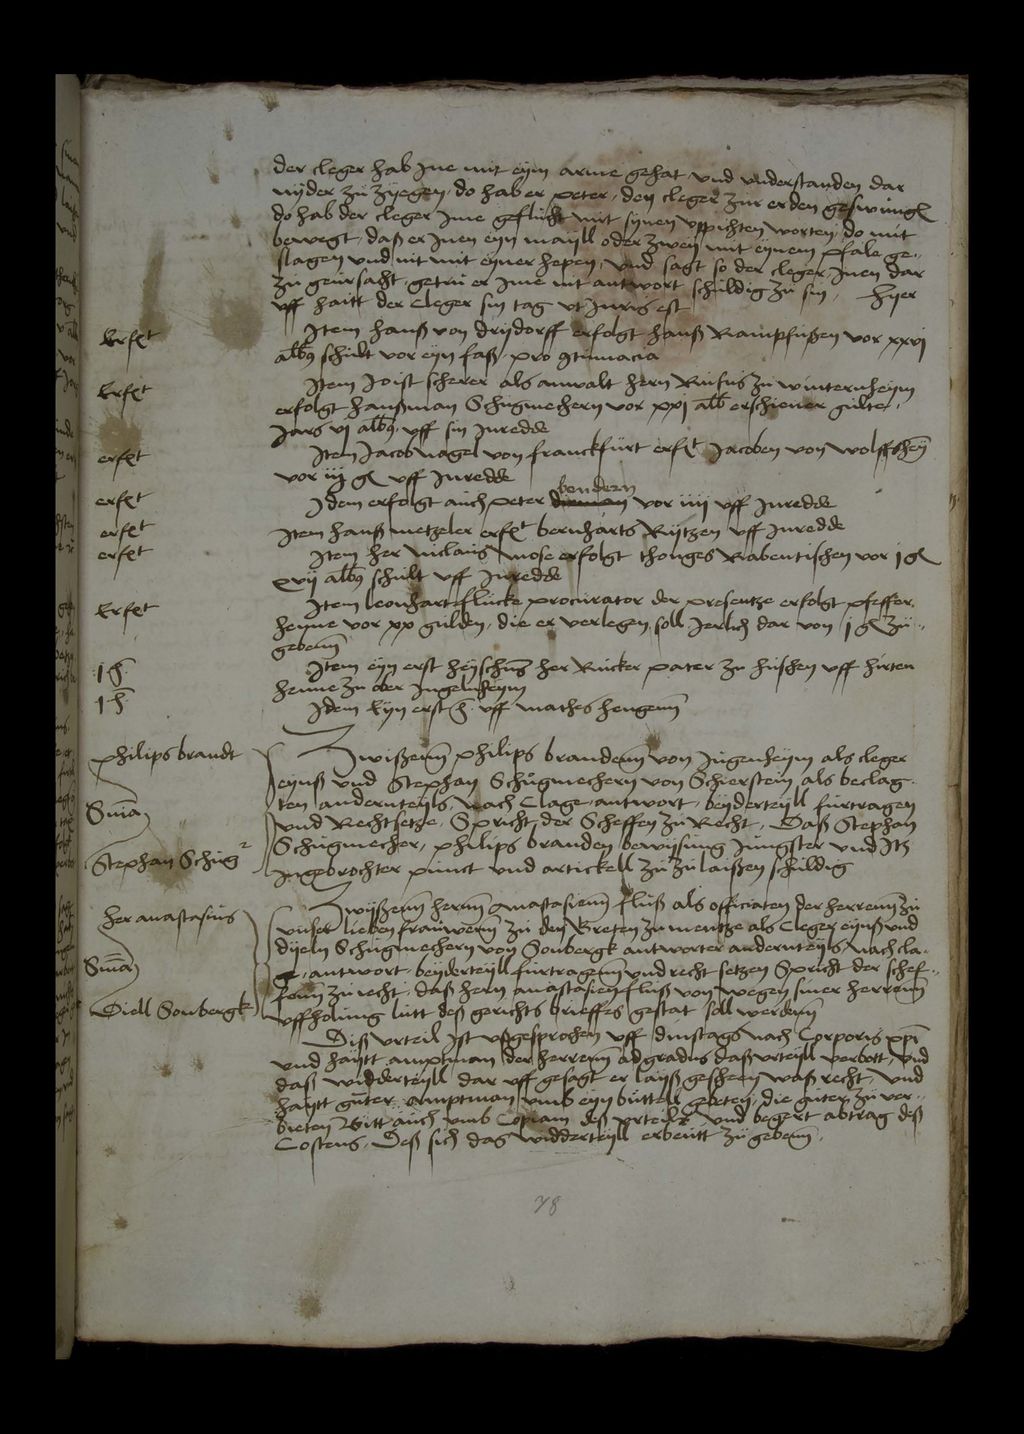 der cleger hab Jne mit eym arme gehat vnd vnderstanden dar
nyder zu zyegen, do hab er peter, den cleger zur erden geswungen
do hab der cleger Jme geflucht mit synen vppichten worten, do mit
bewegt, daß er Jnen eyn mayll oder zwey mit eynem pfale ge-
slagen vnd nit mit eyner hepen, vnd sagt so der cleger Jnen dar
zu geursacht, getru er Jme nit antwort schuldig zu sin, hyer
vff haitt der Cleger sin tag vt Juris est
Erft Item hanß von drydorff erfolgt hanß Rampfußen vor xxvj
alb9 schult vor eyn faß, pro 9tumacia
Erft Item Joist scherer als anwalt hern Rufus zu winternheym
erfolgt hanßman Schugmechern vor xxj alb erschiener gulte,
Jars vj alb9, vff sin Inredde
erft Item Jacob nagel von franckfurt erft Jacoben von wolffshen
vor iiij gl vff Inredde
erft Idem erfolgt auch peter bendern vor iiij vff Inredde
erft Item hanß metzeler erft bernharts Rytzen vff Inredde
erft Item her niclais mose erfolgt thonges Rabentischen vor j gl
xvij alb9 schult vff Inredde
Erft Item leonhart flucke procurator der presentze erfolgt pfeffer-
henne vor xx gulden, die er verlegen soll Jerlich dar von j gl zu
gebenn
1 h Item eyn erst heyschung her Rucker pater zu husen vff hirten
henne zu ober Ingelnheym
1 h Idem Eyn erst h vff mathes hengenn
philips brandt
Zwißenn philips brandenn von Jugenheym als cleger
eynß vnd Stephan Schugmechern von Schierstein als beclag-
Sniam
ten andernteyls, nach Clage, antwort, beyderteyll furtragen
vnd Rechtsetze, Spricht der Scheffen zu Recht, Daß Stephan
Stephan Schug
Schugmecher, philips branden bewysung Jungster vnd Itz
Jngebrochter punct vnd artickell zu zulaißen schuldig
her anastasius
Zwyßenn hernn Anastasienn fluß als officiaten der herrenn zu
vnser lieben frauwenn zu den greten zu mentze als Cleger eynß vnd
dyeln Schugmechern von Sonbergk antworter andernteyls, nach cla-
Sniam
ge, antwort, beyderteyll furtragenn vnd recht setzen Spricht der schef-
fenn zu recht, daß hern anastasien fluß von wegen siner herrenn
Diell Sonbergk
vffholung lutt deß gerichts brieffes gestat soll werdenn
Diß vrteil Ist vßgesprochen vff dinstags nach Corporis xpi
vnd haytt amptman der herrenn ad gradus daß vrteyll verbott, vnd
daß widderteyll dar vff gesagt er layß gescheen waß recht, vnd
haytt guter amptman vmb eyn buttell gebeten, die guter zu ver-
bieten Bitt auch vmb Copiam deß vrteilß, vnd begert abtrag deß
Costens, Deß sich das widderteyll erbeutt zu gebenn,
78